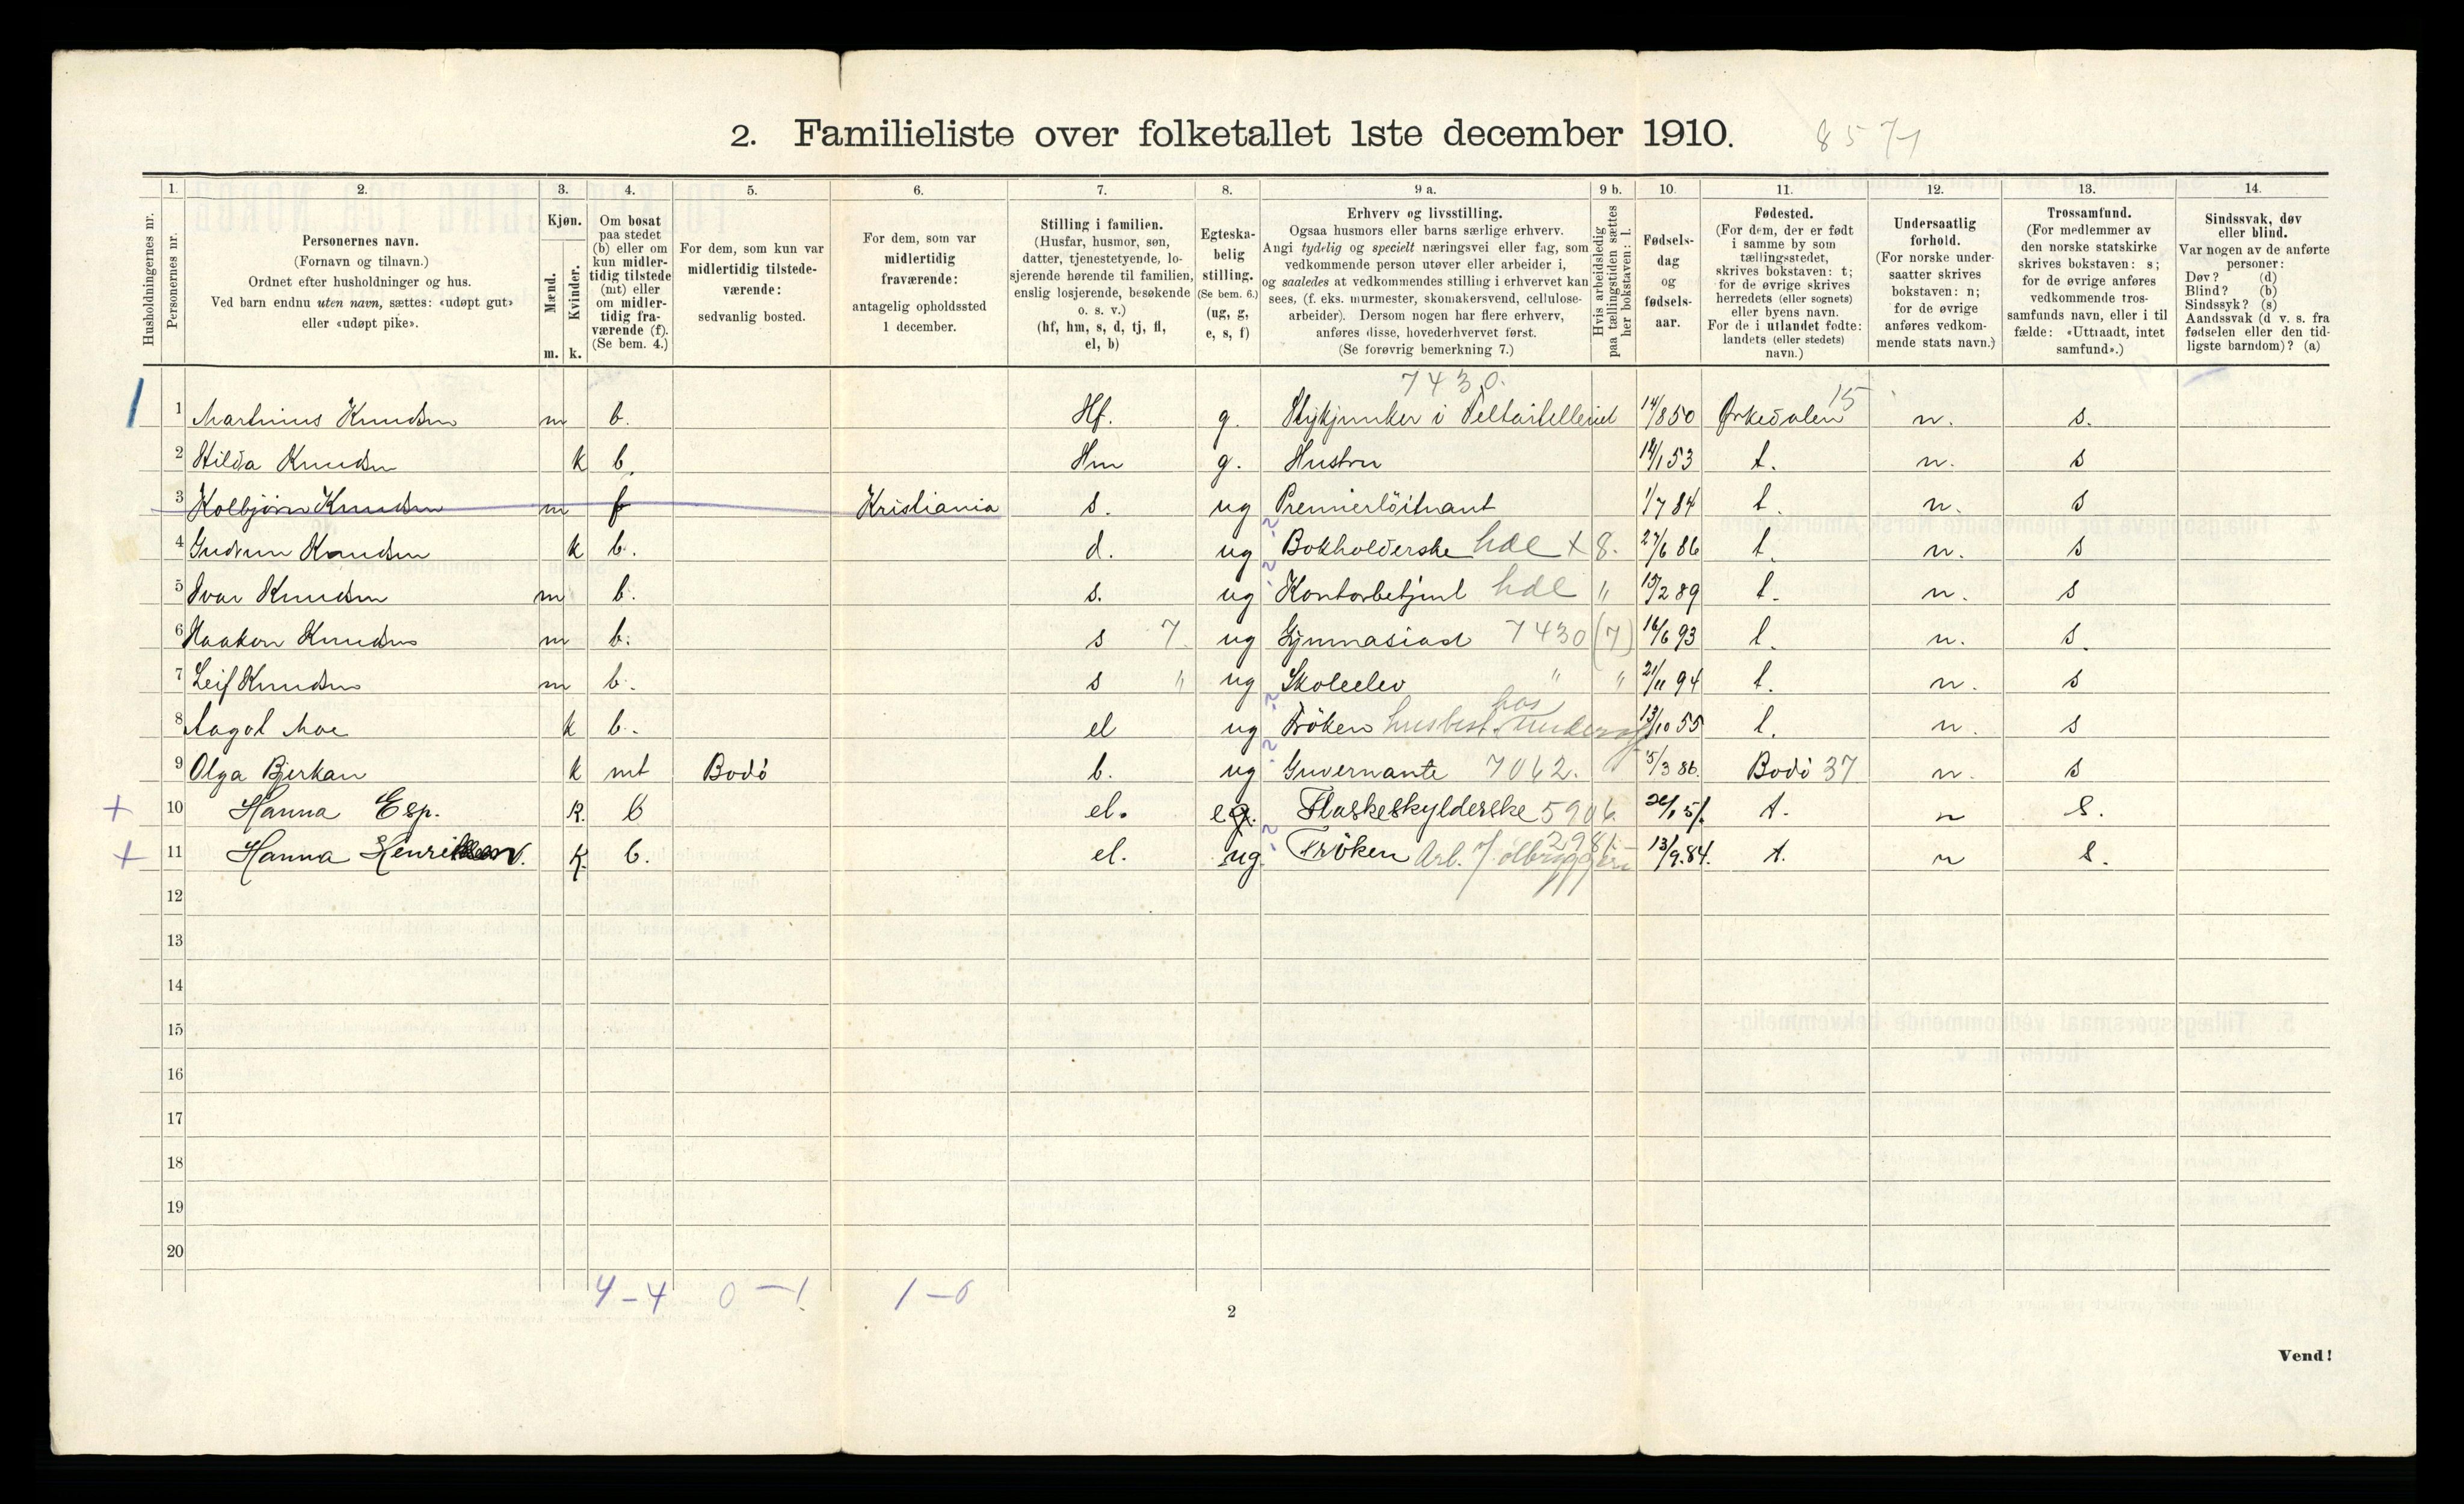 2. Familieliste over folketallet 1ste december 1910. 8571
Husholdningernes nr.
1. Personernes nr.
2. Personernes navn. (Fornavn og tilnavn.) Ordnet efter husholdninger og hus. Ved barn endnu uten navn, sættes: «udøpt gut» eller «udøpt pike».
3. Kjøn. Mænd. m. Kvinder. k.
4. Om bosat paa stedet (b) eller om kun midlertidig tilstede (mt) eller om midlertidig fraværende (f). (Se bem. 4.)
5. For dem, som kun var midlertidig tilstedeværende: sedvanlig bosted.
6. For dem, som var midlertidig fraværende: antagelig opholdssted 1 december.
7. Stilling i familien. (Husfar, husmor, søn, datter, tjenestetyende, losjerende hørende til familien, enslig losjerende, besøkende o. s. v.) (hf, hm, s, d, tj, fl, el, b)
8. Egteskabelig stilling. (Se bem. 6.) (ug, g, e, s, f)
9 a. Erhverv og livsstilling. Ogsaa husmors eller barns særlige erhverv. Angi tydelig og specielt næringsvei eller fag, som vedkommende person utøver eller arbeider i, og saaledes at vedkommendes stilling i erhvervet kan sees, (f. eks. murmester, skomakersvend, cellulosearbeider). Dersom nogen har flere erhverv, anføres disse, hovederhvervet først. (Se forøvrig bemerkning 7.)
9 b. Hvis arbeidsledig paa tællingstiden sættes her bokstaven: l.
10. Fødselsdag og fødselsaar.
11. Fødested. (For dem, der er født i samme by som tællingsstedet, skrives bokstaven: t; for de øvrige skrives herredets (eller sognets) eller byens navn. For de i utlandet fødte: landets (eller stedets) navn.)
12. Undersaatlig forhold. (For norske undersaatter skrives bokstaven: n; for de øvrige anføres vedkommende stats navn.)
13. Trossamfund. (For medlemmer av den norske statskirke skrives bokstaven: s; for de øvrige anføres vedkommende trossamfunds navn, eller i tilfælde: «Uttraadt, intet samfund».)
14. Sindssvak, døv eller blind. Var nogen av de anførte personer: Døv? (d) Blind? (b) Sindssyk? (s) Aandssvak (d v. s. fra fødselen eller den tidligste barndom)? (a)
7430.
1 Martinius Knudsen m b. Hf. g. Stykjunker i Feltartelleriet 14/8 50 Ørkedalen 15 n. s.
2 Hilda Knudsen k b. Hm g. Hustru 14/1 53 t. n. s
3 Kolbjörn Knudsen m f Kristiania s. ug Premierlöitnant 1/7 84 t. n. s
4 Gudrun Knudsen k b. d. ug Bokholderske hdl + 8. 27/6 86 t. n. s
5 Ivar Knudsen m b. s. ug Kontorbetjent hdl " 15/2 89 t. n. s
6 Haakon Knudsen m b. s 7. ug Gymnasiast 7430 (7) 16/6 93 t. n. s.
7 Leif Knudsen m b. s " ug Skoleelev " " 21/11 94 t. n. s
8 Aagot Moe k b. el ug Fröken husbest. hos 13/10 55 t. n. s
9 Olga Bjerkan k mt Bodö b. ug Guvernante 7062. 5/3 86. Bodö 37 n. s
10 Hanna Esp. k. b el. e. Flaskeskylderske 5906. 26/1 51. t. n S.
11 Hanna Henriksen. k. b. el. ug. Fröken Arb. ølbryggeri 2981 13/9. 84. t. n S.
12
13
14
15
16
17
18
19
20
4-4 0-1 1-0
2
Vend!